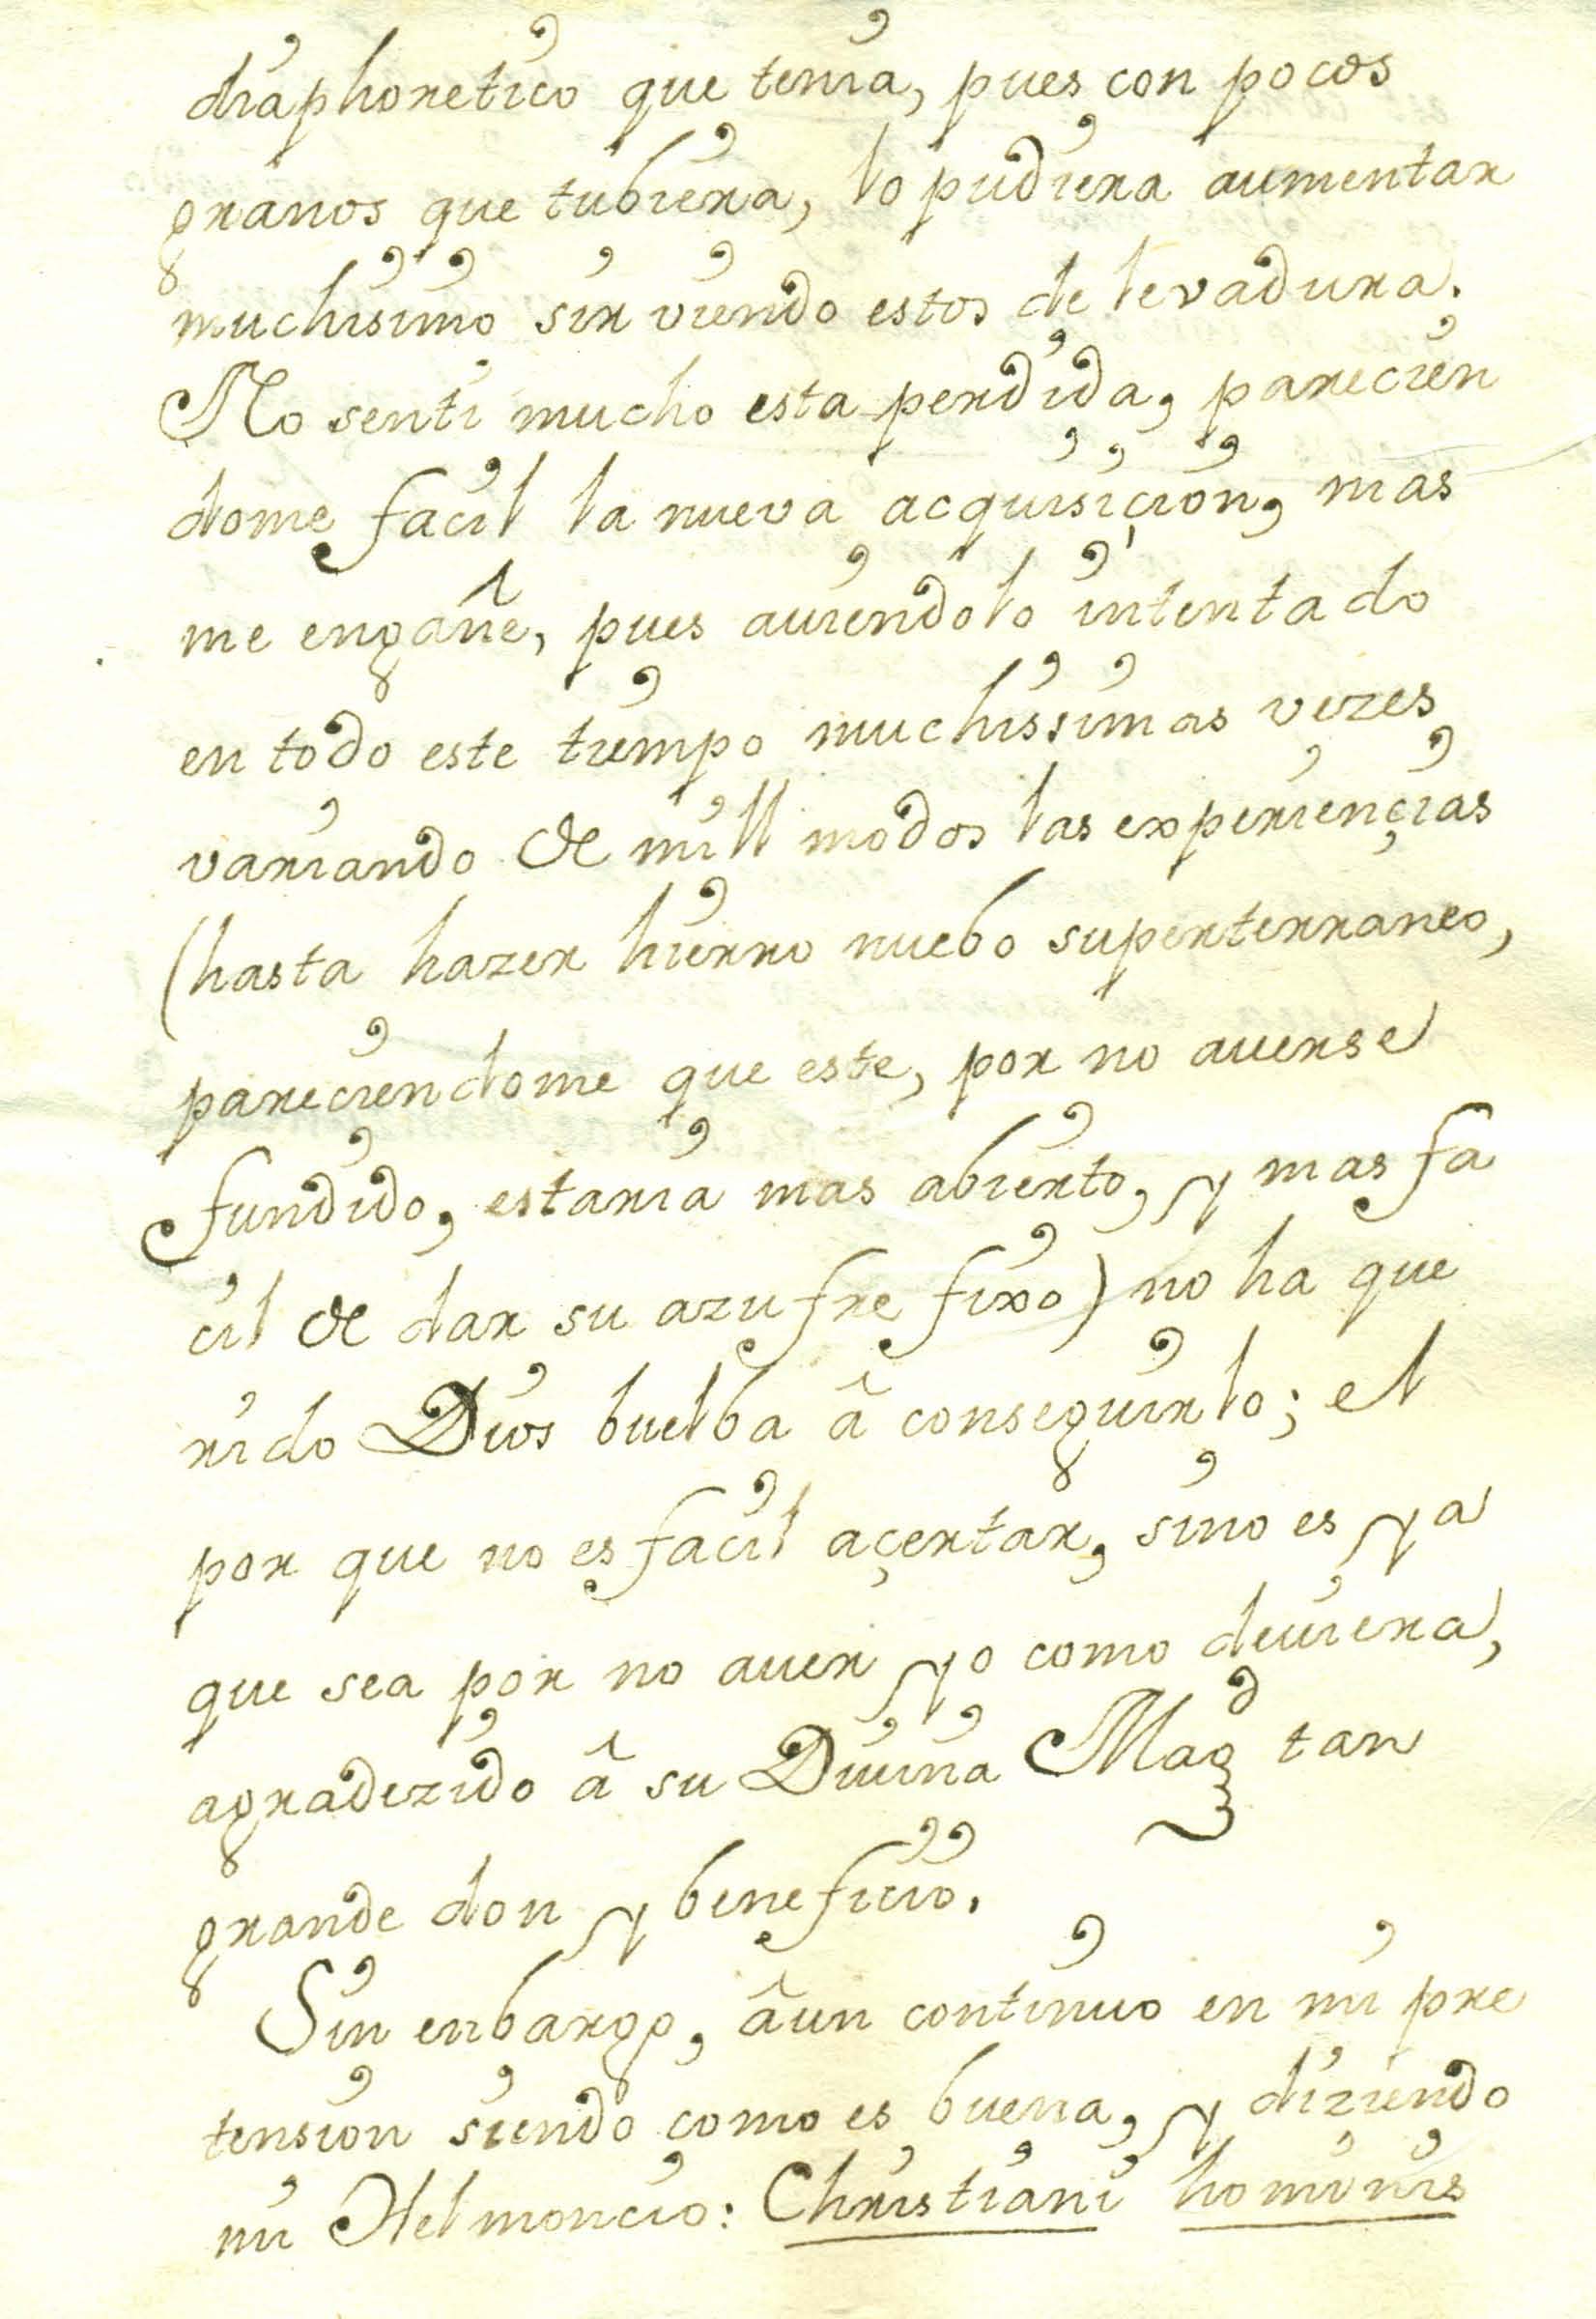 diaphoretico que tenia, pues con pocos
granos que tubiera, lo pudiera aumentar
muchisimo sirviendo estos de levadura.
No senti mucho esta perdida, parecien
dome facil la nueva acquisiçion, mas
me engañe, pues auiendolo intentado
en todo este tiempo muchissimas vezes
variando de mill modos las experiençias
(hasta hazer hierro nuebo superterraneo,
pareciendome que este, por no auerse
fundido, estaria mas abierto, y mas fa
cil de dar su azufre fixo) no ha que
rido Dios buelba â conseguirlo; el
por que no es facil açertar, sino es ya
que sea por no auer yo como deuiera,
agradezido â su Diuina Magd tan
grande don y beneficio.
Sin enbargo, âun continuo en mi pre
tension siendo como es buena, y diziendo
mi Helmoncio: Christiani hominis